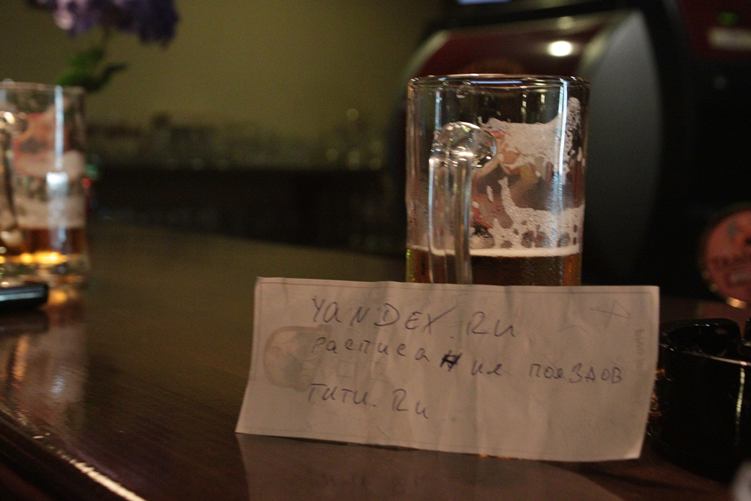 YANDEX.RU
расписания поездов
тити.Ru